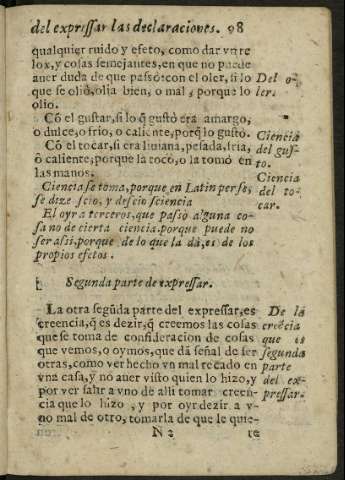 del expressar las declaraciones. 98
qualquier ruido y efeto, como dar vn re
lox, y cosas semejantes, en que no puede
auer duda de que passò: con el oler, si lo
que se oliò, olia bien, o mal, porque lo
olio.
Del o-
ler.
Cõ el gustar, si lo q̃ gustò era amargo,
o dulce, o frio, o caliente, porq̃ lo gustò.
Cõ el tocar, si era liuiana, pesada, fria,
ò caliente, porque la tocò, o la tomò en
las manos.
Ciencia
del gus-
to.
Ciencia
del to-
car.
Ciencia se toma, porque en Latin per se,
se dize scio, y de scio sciencia
El oyr a terceros, que passò alguna co-
sa no de cierta ciencia, porque puede no
ser assi, porque de lo que la dà, es de los
propios efetos.
Segunda parte de expressar.
La otra segũda parte del expressar, es
creencia, q̃ es dezir, q̃ creemos las cosas
que se toma de consideracion de cosas
que vemos, o oymos, que dã señal de ser
otras, como ver hecho vn mal recado en
vna casa, y no auer visto quien lo hizo, y
por ver salir a vno de alli tomar creen-
cia que lo hizo, y por oyr dezir a v-
no mal de otro, tomarla de que le quie-
De la
creẽcia
que es
segunda
parte
del ex-
pressar.
N 2 re